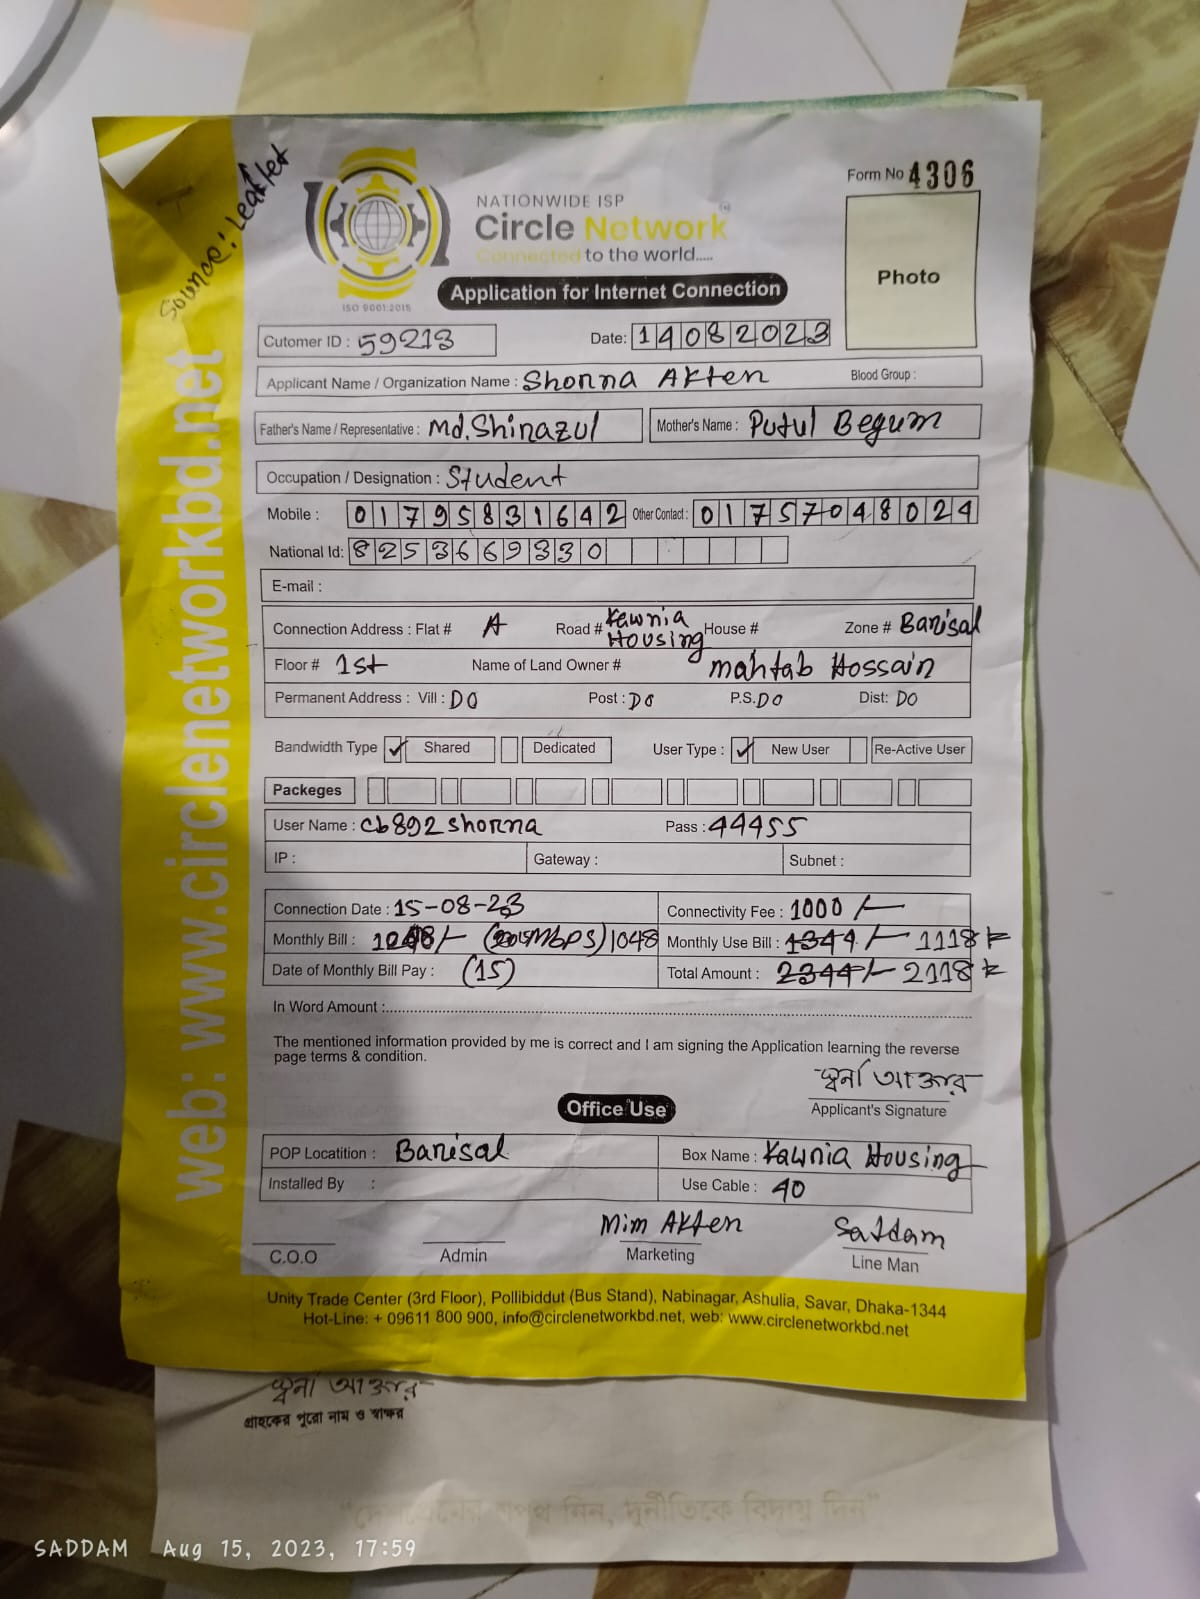 Source: Leaflet
web: www.circlenetworkbd.net
Form No 4306
NATIONWIDE ISP
Circle Network
Connected to the world.....
ISO 9001:2015
Photo
Application for Internet Connection
Cutomer ID : 59213 Date: 14082023
Applicant Name / Organization Name : Shorna Akter Blood Group :
Father's Name / Representative : Md. Shirazul Mother's Name : Putul Begum
Occupation / Designation : Student
Mobile : 01795831642 Other Contact : 01757048024
National Id: 8253669330
E-mail :
Connection Address : Flat # A Road # Kawnia Housing House # Zone # Barisal
Floor # 1st Name of Land Owner # mahtab Hossain
Permanent Address : Vill : DO Post : DO P.S. DO Dist: DO
Bandwidth Type ✓ Shared Dedicated User Type : ✓ New User Re-Active User
Packeges
User Name : cb892shorna Pass : 44455
IP : Gateway : Subnet :
Connection Date : 15-08-23 Connectivity Fee : 1000/-
Monthly Bill : (15Mbps) 1048 Monthly Use Bill : 1344/- 1118
Date of Monthly Bill Pay : (15) Total Amount : 2344/- 2118
In Word Amount :
The mentioned information provided by me is correct and I am signing the Application learning the reverse
page terms & condition.
স্বর্না আক্তার
Applicant's Signature
Office Use
POP Locatition : Barisal Box Name : Kawnia Housing
Installed By : Use Cable : 40
Mim Akter Saddam
C.O.O Admin Marketing Line Man
Unity Trade Center (3rd Floor), Pollibiddut (Bus Stand), Nabinagar, Ashulia, Savar, Dhaka-1344
Hot-Line: + 09611 800 900, info@circlenetworkbd.net, web: www.circlenetworkbd.net
স্বর্না আক্তার
গ্রাহকের পুরো নাম ও স্বাক্ষর
নিন, দুর্নীতিকে বিদায় দিন"
SADDAM Aug 15, 2023, 17:59